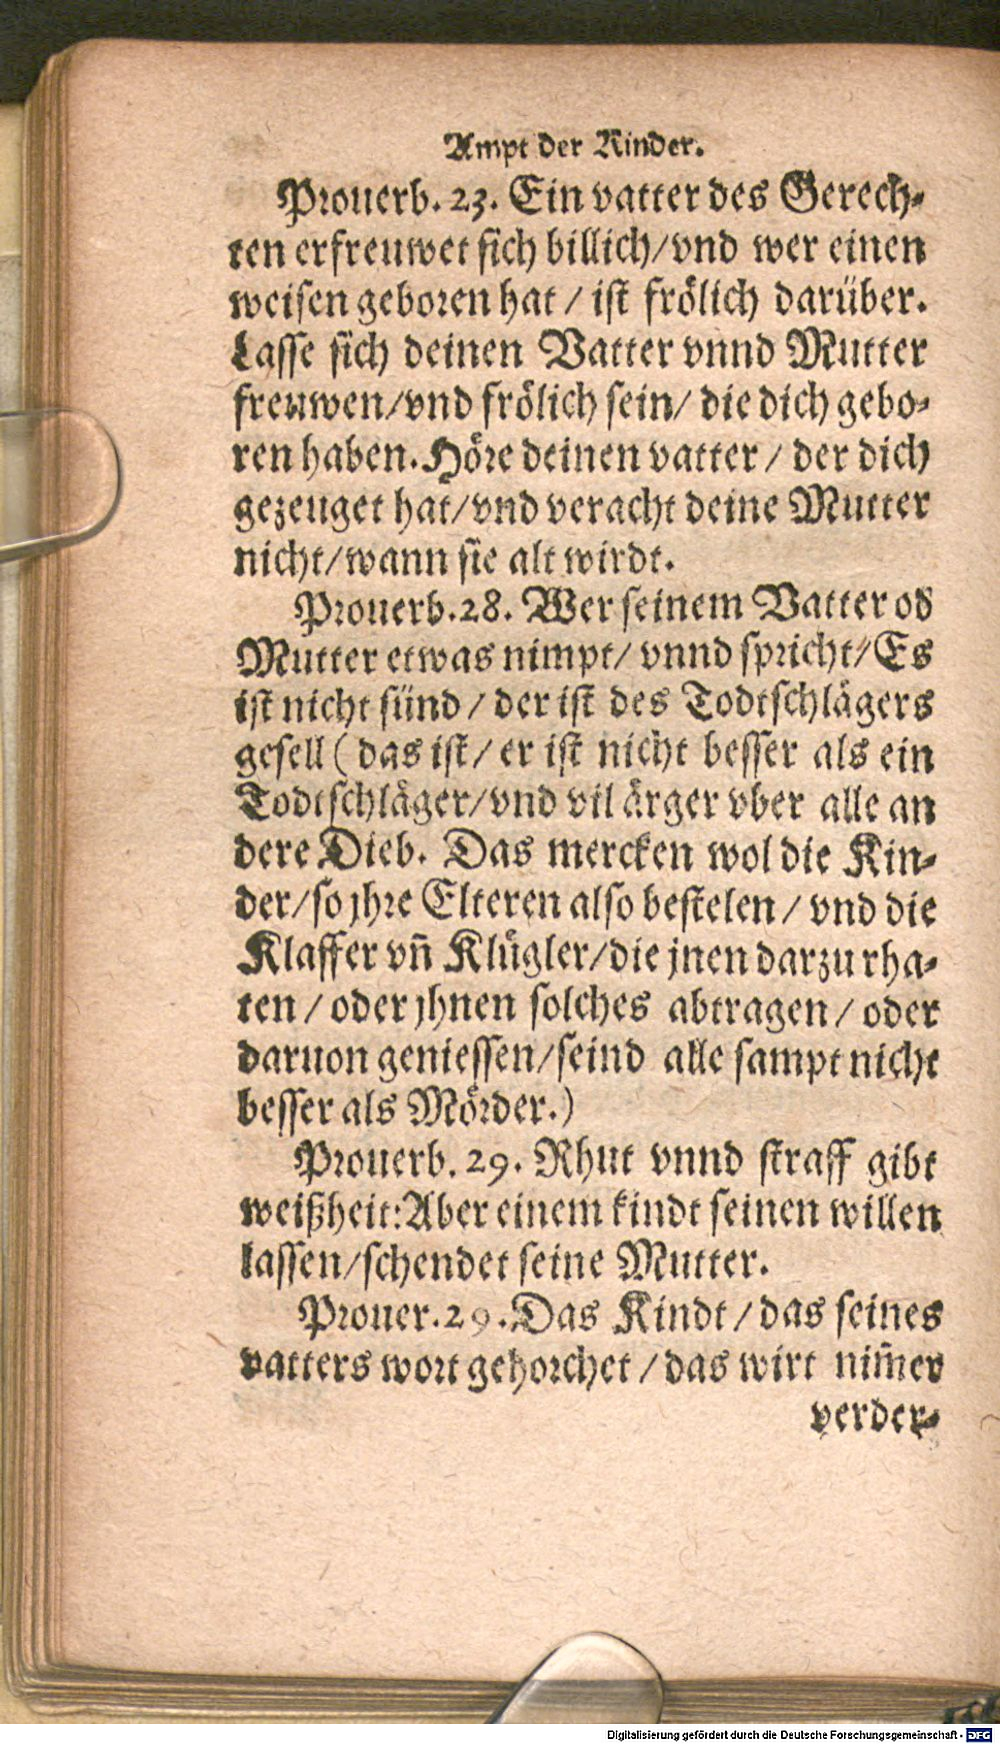 Ampt der Kinder.
Prouerb. 23. Ein vatter des Gerech-
ten erfreuwet sich billich/vnd wer einen
weisen geboren hat / ist frölich darüber.
Lasse sich deinen Vatter vnnd Mutter
freuwen/vnd frölich sein/ die dich gebo-
ren haben. Höre deinen vatter / der dich
gezeuget hat/vnd veracht deine Mutter
nicht/wann sie alt wirdt.
Prouerb.28. Wer seinem Vatter od
Mutter etwas nimpt/ vnnd spricht/Es
ist nicht sünd / der ist des Todtschlägers
gesell ( das ist/ er ist nicht besser als ein
Todtschläger/vnd vil ärger vber alle an
dere Dieb. Das mercken wol die Kin-
der/so jhre Elteren also bestelen / vnd die
Klaffer vn̄ Klügler/die jnen darzu rha-
ten / oder jhnen solches abtragen / oder
daruon geniessen/seind alle sampt nicht
besser als Mörder.)
Prouerb. 29. Rhut vnnd straff gibt
weißheit:Aber einem kindt seinen willen
lassen/schendet seine Mutter.
Prouer.29.Das Kindt / das seines
vatters wort gehorchet / das wirt nim̄er
verder-
Digitalisierung gefördert durch die Deutsche Forschungsgemeinschaft - DFG